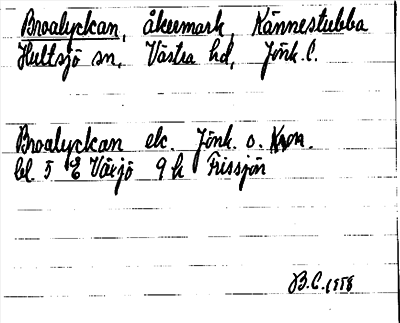 Broalyckan, åkermark, Kännestubba
Hultsjö sn, Västra hd, Jönk. l.
Broalyckan ek. Jönk. o. Kron.
bl 5 E Växjö 9 h Frissjön
B.C. 1958